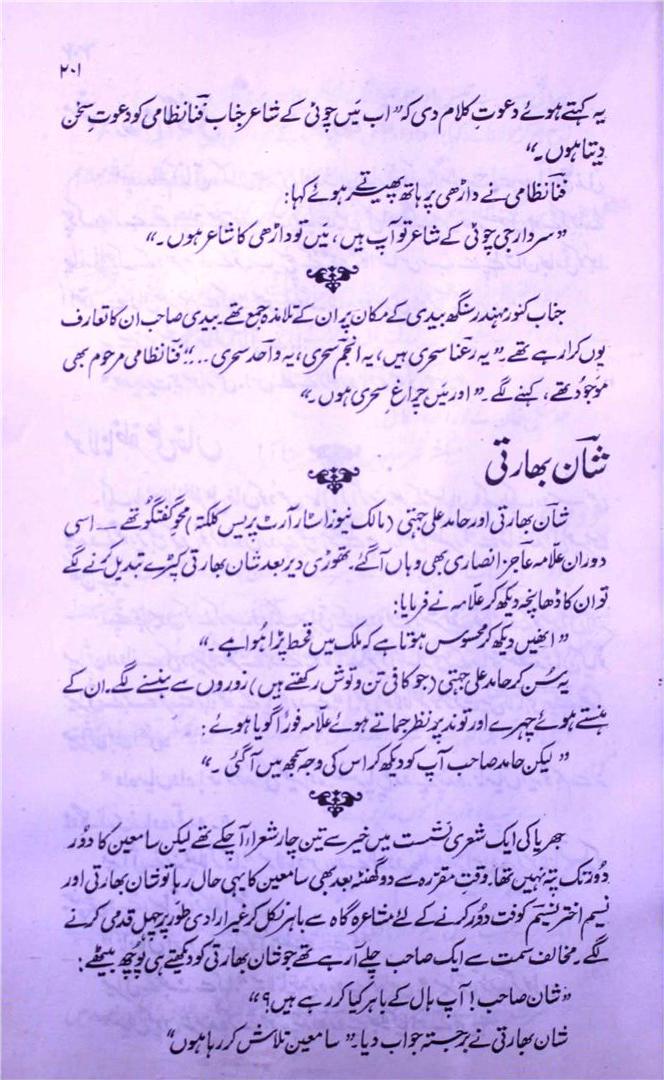 ۲۰۱
یہ کہتے ہوئے دعوتِ کلام دی کہ ”اب میں چوٹی کے شاعر جناب فنا نظامی کو دعوتِ سخن
دیتا ہوں۔“
فنا نظامی نے داڑھی پر ہاتھ پھیرتے ہوئے کہا:
”سردار جی چوٹی کے شاعر تو آپ ہیں، میں تو داڑھی کا شاعر ہوں۔“
جناب کنور مہندر سنگھ بیدی کے مکان پر ان کے تلامذہ جمع تھے۔ بیدی صاحب ان کا تعارف
یوں کرا رہے تھے۔ ”یہ رعنا سحری ہیں، یہ انجم سحری، یہ واحد سحری ...“ فنا نظامی مرحوم بھی
موجود تھے، کہنے لگے۔ ”اور میں چراغِ سحری ہوں۔“
شان بھارتی
شان بھارتی اور حامد علی جہتی (مالک نیوز اسٹار آرٹ پریس کلکتہ) محوِ گفتگو تھے۔ اسی
دوران علامہ عاجز انصاری بھی وہاں آ گئے۔ تھوڑی دیر بعد شان بھارتی کپڑے تبدیل کرنے لگے
تو ان کا ڈھانچہ دیکھ کر علامہ نے فرمایا:
”انھیں دیکھ کر محسوس ہوتا ہے کہ ملک میں قحط پڑا ہوا ہے۔“
یہ سن کر حامد علی جہتی (جو کافی تن و توش رکھتے ہیں) زوروں سے ہنسنے لگے۔ ان کے
ہنستے ہوئے چہرے اور توند پر نظر جماتے ہوئے علامہ فوراً گویا ہوئے:
”لیکن حامد صاحب آپ کو دیکھ کر اس کی وجہ سمجھ میں آ گئی۔“
جھریا کی ایک شعری نشست میں خیر سے تین چار شعراء آ چکے تھے لیکن سامعین کا دُور
دُور تک پتہ نہیں تھا۔ وقتِ مقررہ سے دو گھنٹہ بعد بھی سامعین کا یہی حال رہا تو شان بھارتی اور
نسیم اختر نسیم کوفت دُور کرنے کے لئے مشاعرہ گاہ سے باہر نکل کر غیر ارادی طور پر چہل قدمی کرنے
لگے۔ مخالف سمت سے ایک صاحب چلے آ رہے تھے جو شان بھارتی کو دیکھتے ہی پُوچھ بیٹھے:
”شان صاحب! آپ ہال کے باہر کیا کر رہے ہیں؟“
شان بھارتی نے برجستہ جواب دیا۔ ”سامعین تلاش کر رہا ہوں“